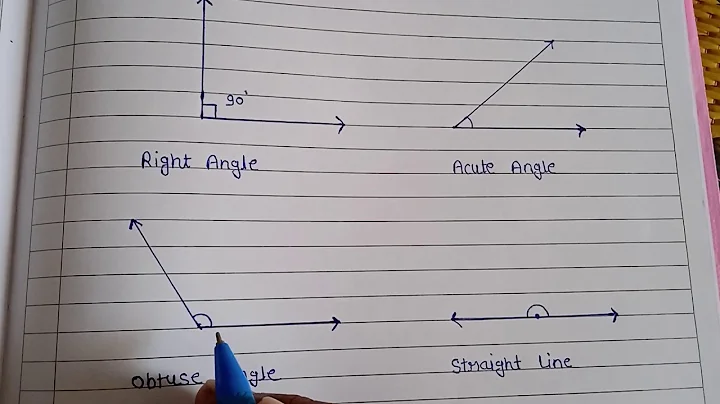 90°
Right Angle
Acute Angle
Obtuse
Straight Line